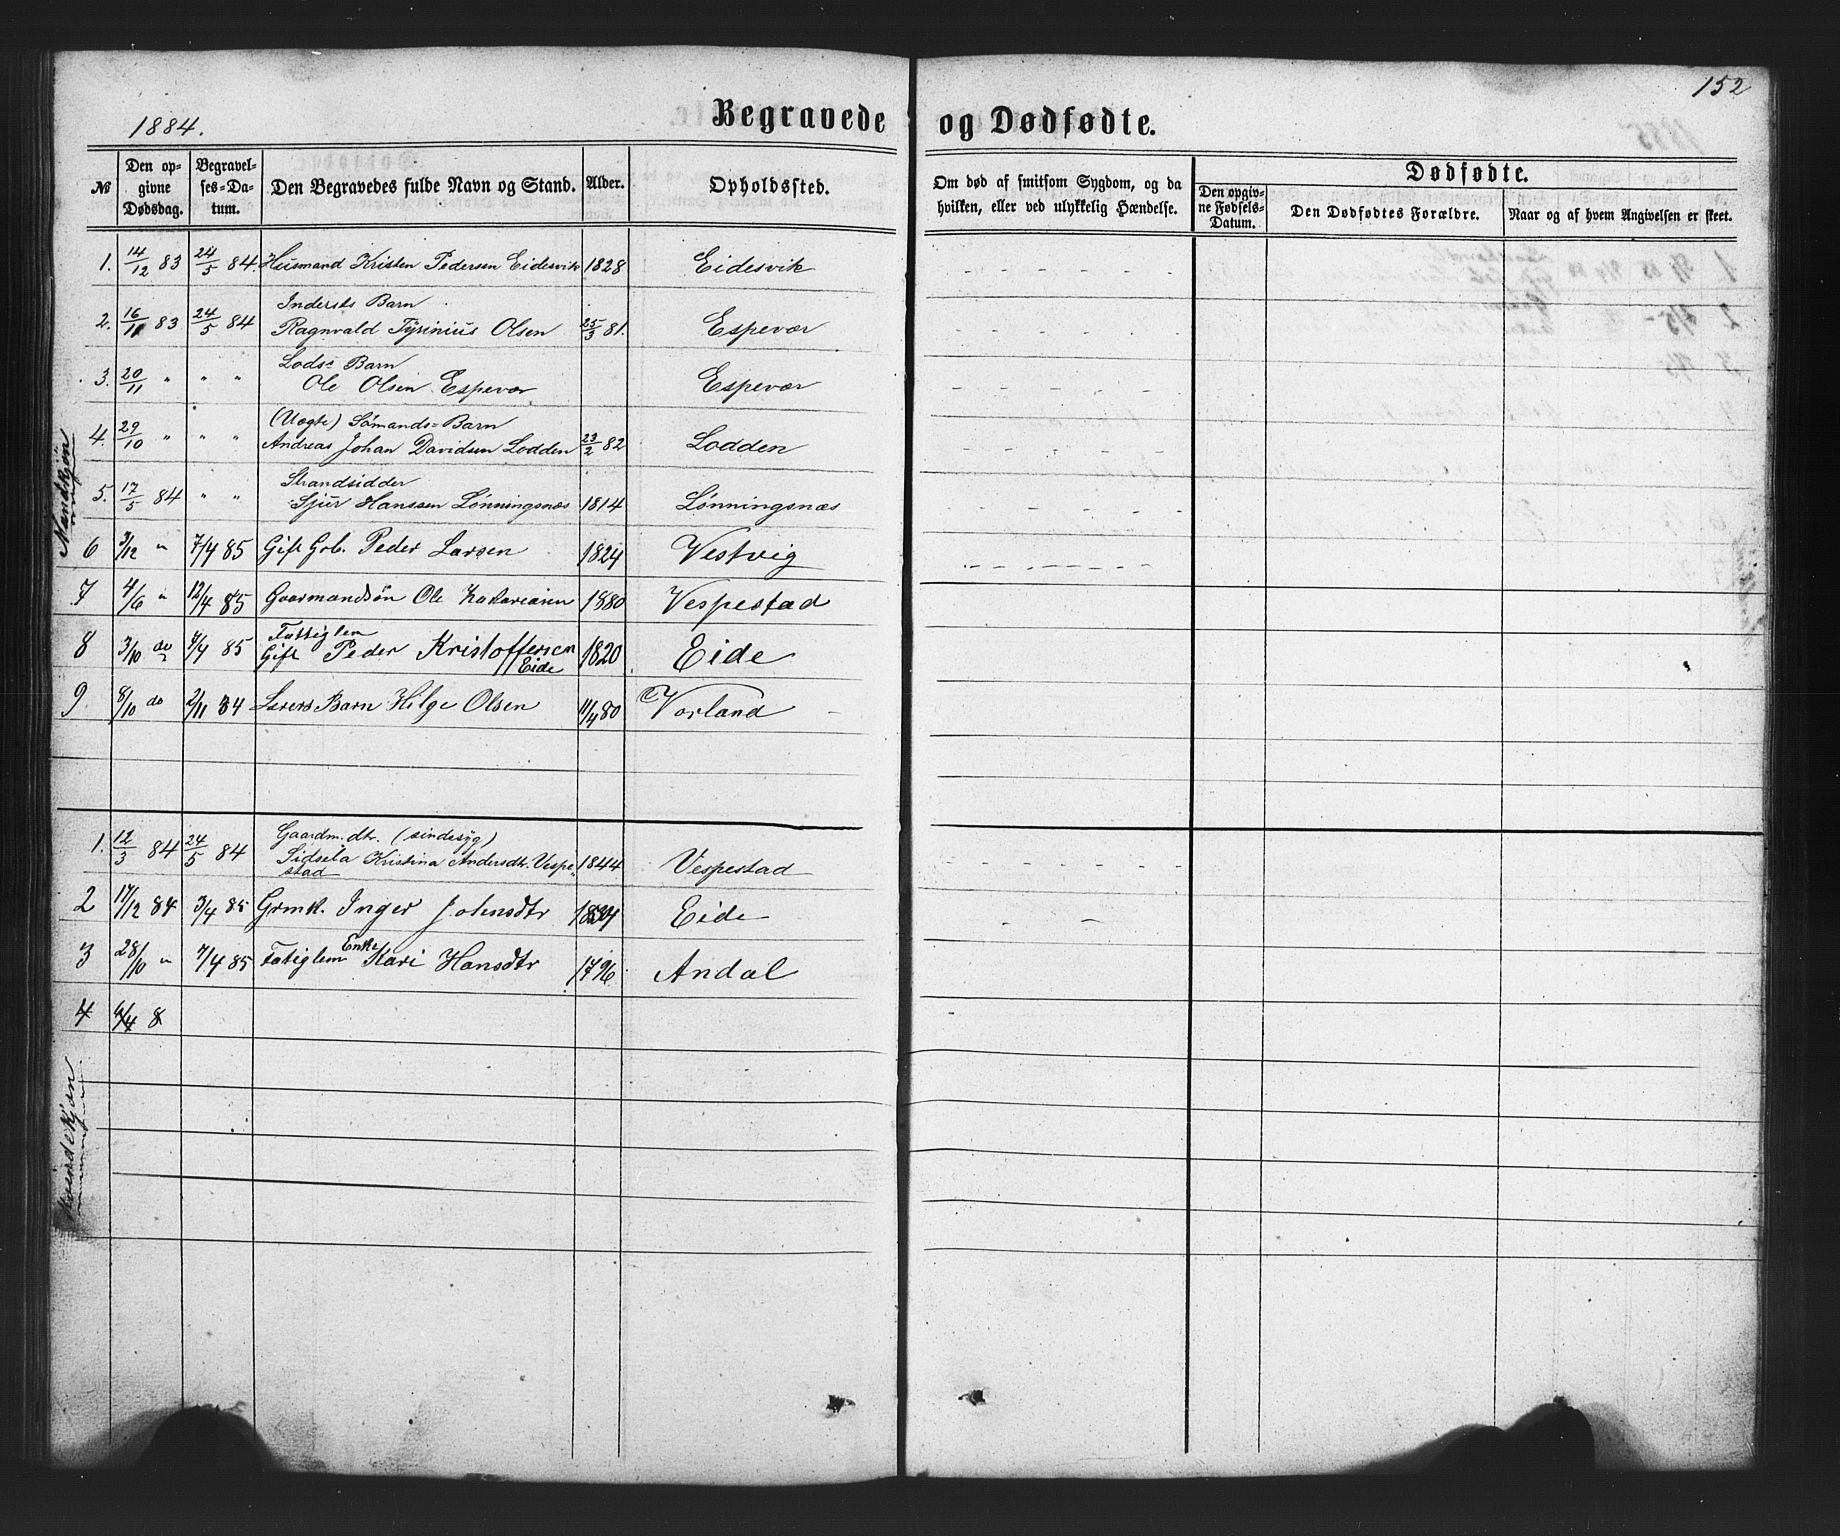 152
1884.
Begravede og Dødfødte.
№
Den opgivne Dødsdag.
Begravelses-Datum.
Den Begravedes fulde Navn og Stand.
Alder.
Opholdssted.
Om død af smitsom Sygdom, og da hvilken, eller ved ulykkelig Hændelse.
Dødfødte.
Den opgivne Fødsels-Datum.
Den Dødfødtes Forældre.
Naar og af hvem Angivelsen er skeet.
Mandkjön
1. 14/12 83 24/5 84. Husmand Kristen Pedersen Eidesvik 1828 Eidesvik
Indersts Barn
2. 16/11 83 24/5 84 Ragnvald Tyrinius Olsen 25/3 81. Espevær
Lods= Barn
3. 20/11 " " " Ole Olsen Espevær Espevær
(Uægte) Sømands=Barn
4. 29/10 " " " Andreas Johan Davidsen Lodden 23/2 82 Lodden
Strandsidder
5. 17/5 84 " " Sjur Hanssen Lønningsnæs 1814 Lønningsnæs
6 3/12 " 7/4 85 Gift Grb. Peder Larsen 1824 Vestvig
7 4/6 " 12/4 85 Gaarmandsön Ole Zakariasen 1880 Vespestad
Fattiglem
8 3/10 do 7/4 85 Gift Peder Kristoffersen 1820 Eide
Eide
9. 8/10 do 2/11 84 Lærers Barn Hilge Olsen 11/4 80 Vorland
Gaardm. dtr. (sindesyg)
1. 12/3 84 24/5 84 Sidsela Kristina Andersdtr. Vespe- 1844 Vespestad
stad
2 17/12 84 3/4 85 Grmk. Inger Johnsdtr Eide
3 28/10 " 7/4 85 Fattiglem Enke Kari Hansdtr 1796. Andal
4 8
Kvindekjøn